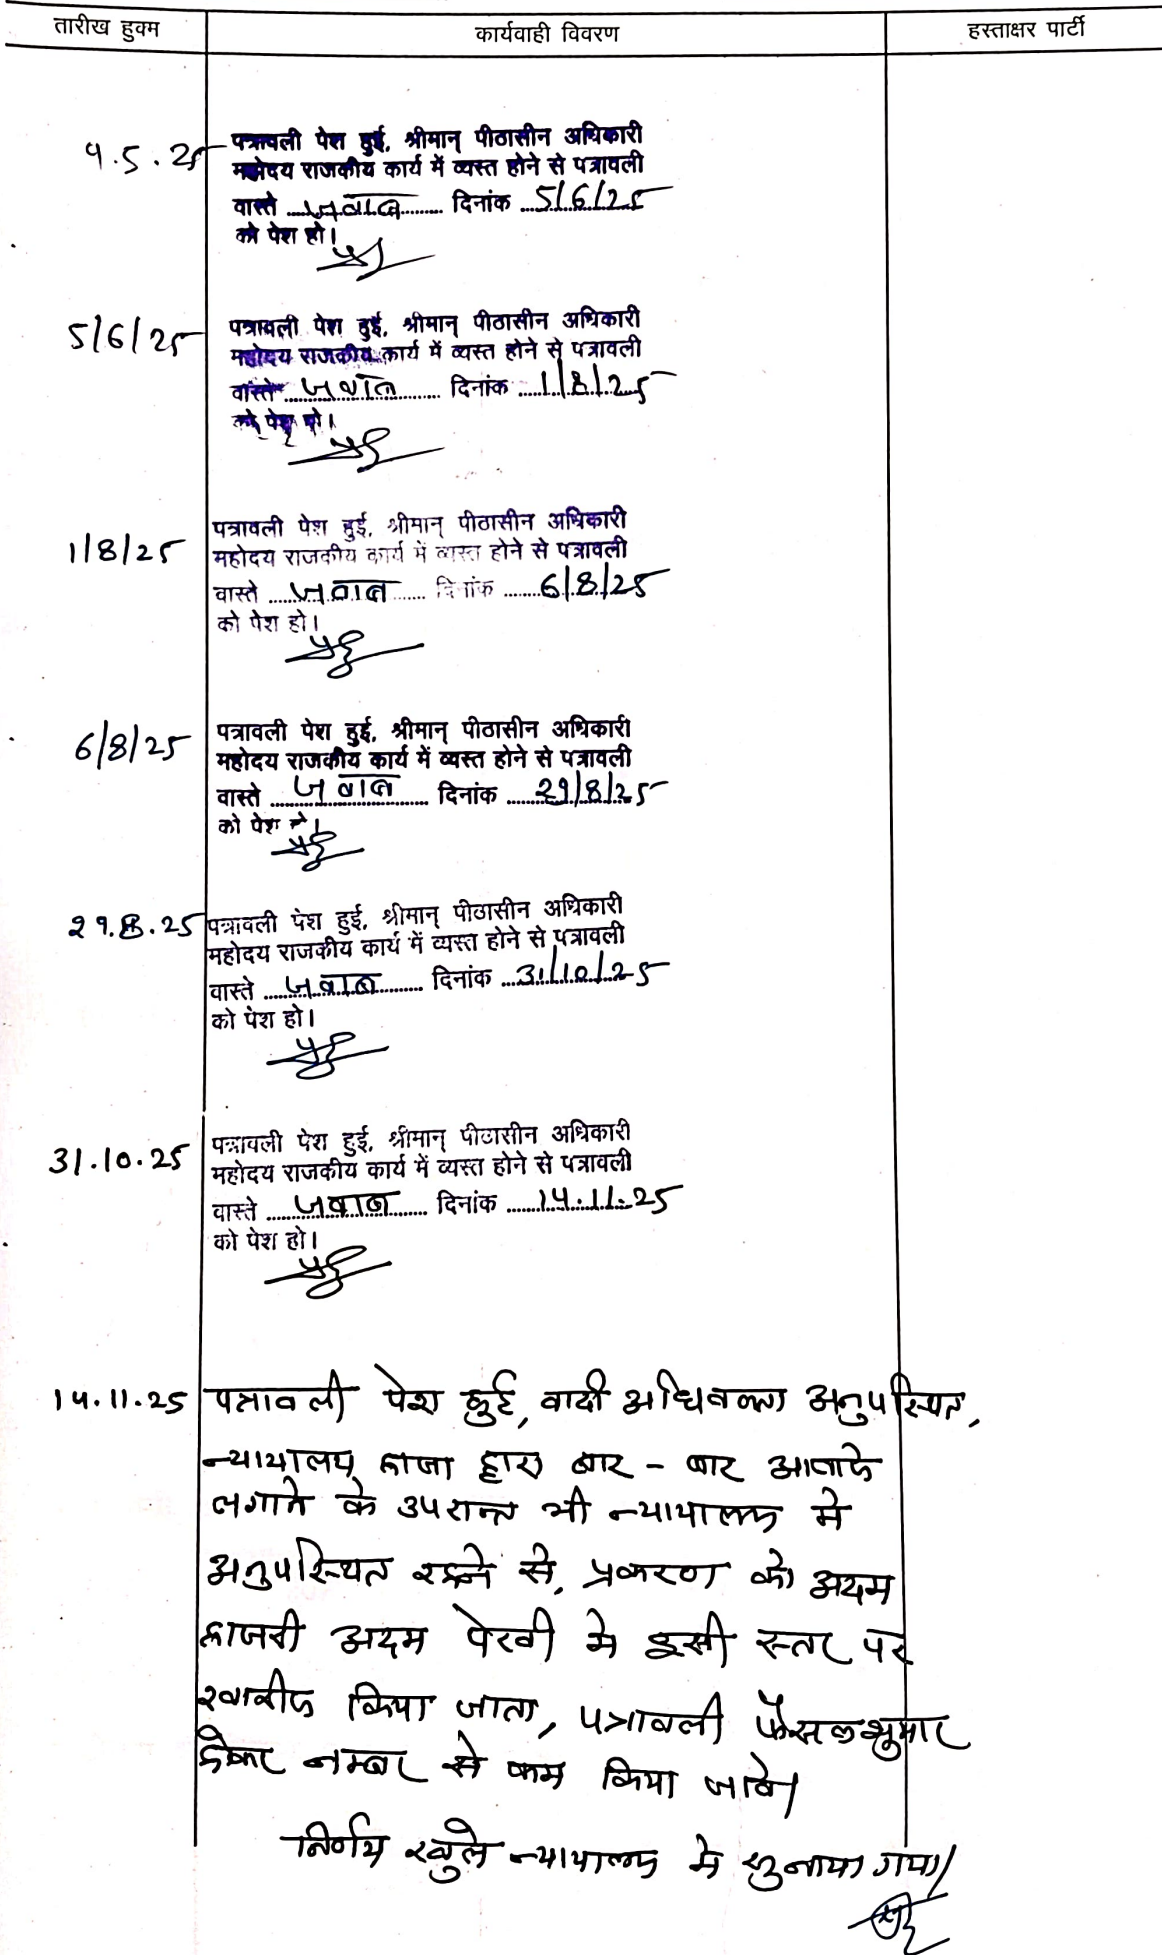 तारीख हुक्म
कार्यवाही विवरण
हस्ताक्षर पार्टी
9.5.25
पत्रावली पेश हुई, श्रीमान् पीठासीन अधिकारी
महोदय राजकीय कार्य में व्यस्त होने से पत्रावली
वास्ते जवाब दिनांक 5/6/25
को पेश हो।
5/6/25
पत्रावली पेश हुई, श्रीमान् पीठासीन अधिकारी
महोदय राजकीय कार्य में व्यस्त होने से पत्रावली
वास्ते जवाब दिनांक 1/8/25
को पेश हो।
1/8/25
पत्रावली पेश हुई, श्रीमान् पीठासीन अधिकारी
महोदय राजकीय कार्य में व्यस्त होने से पत्रावली
वास्ते जवाब दिनांक 6/8/25
को पेश हो।
6/8/25
पत्रावली पेश हुई, श्रीमान् पीठासीन अधिकारी
महोदय राजकीय कार्य में व्यस्त होने से पत्रावली
वास्ते जवाब दिनांक 29/8/25
को पेश हो।
29.8.25
पत्रावली पेश हुई, श्रीमान् पीठासीन अधिकारी
महोदय राजकीय कार्य में व्यस्त होने से पत्रावली
वास्ते जवाब दिनांक 31/10/25
को पेश हो।
31.10.25
पत्रावली पेश हुई, श्रीमान् पीठासीन अधिकारी
महोदय राजकीय कार्य में व्यस्त होने से पत्रावली
वास्ते जवाब दिनांक 14.11.25
को पेश हो।
14.11.25
पत्रावली पेश हुई, वादी अधिवक्ता अनुपस्थित,
न्यायालय द्वारा बार - बार आवाजे
लगाने के उपरान्त भी न्यायालय मे
अनुपस्थित रहने से, प्रकरण को अदम
हाजरी अदम पेरवी मे इसी स्तर पर
खारीज किया जाता, पत्रावली फैसलशुमार
होकर नम्बर से कम किया जावे।
निर्णय खुले न्यायालय मे सुनाया गया।